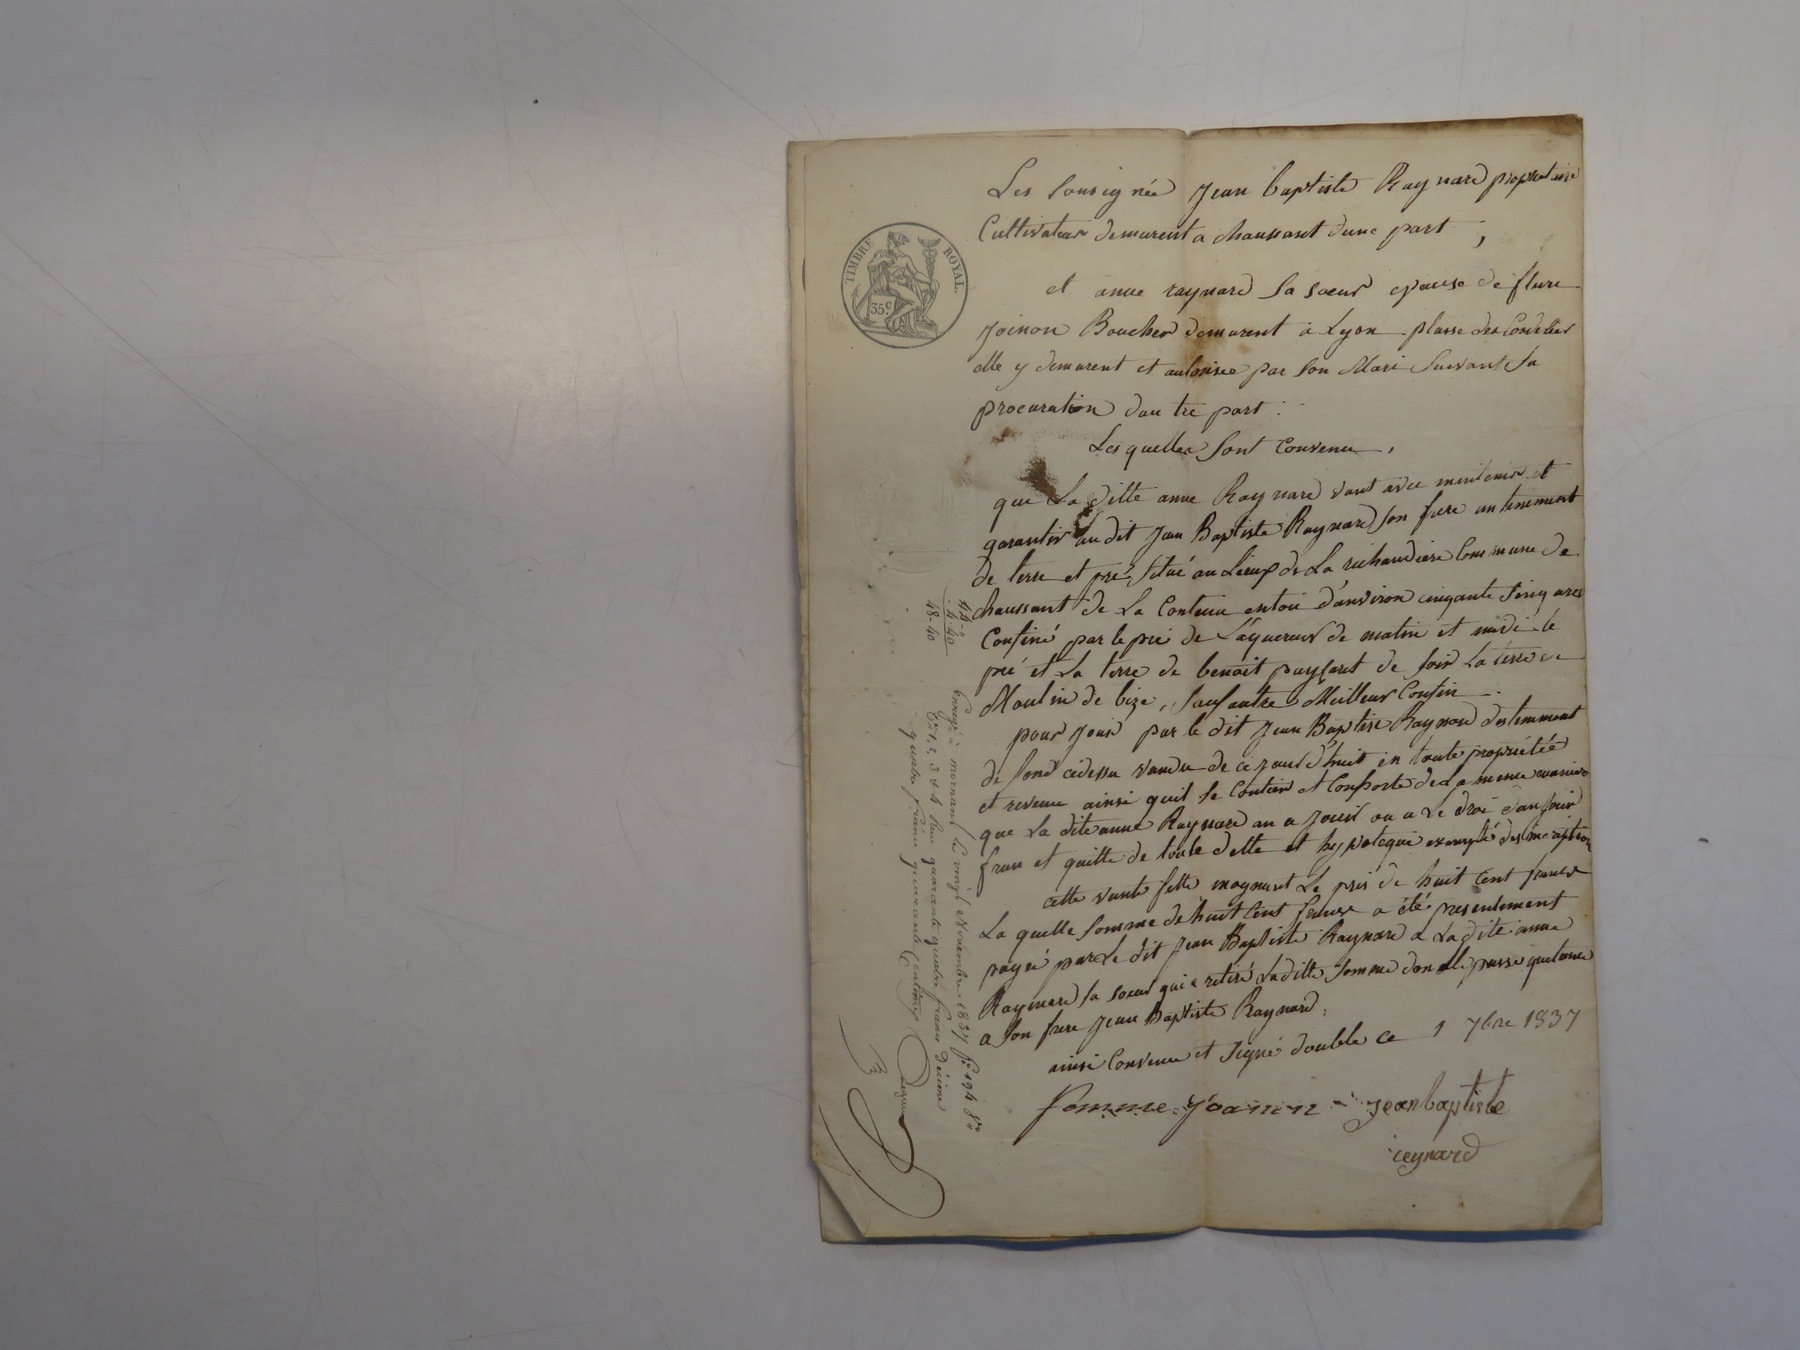 Les sousignée Jean baptiste Raynard proprietaire
Cultivateur demurent a chaussant dune part ;
TIMBRE ROYAL.
35c
et anne raynard sa soeur epouse de fleuri
Joinon Boucher demurent à Lyon plasse des Cordellier
elle y demurent et autorisee par son Mari suivant sa
procuration dautre part :
Les quelles sont Convenu ,
que La ditte anne Raynard vant avec mintenir et
garantir au dit Jean Baptiste Raynard son frere un tenement
de terre et pré, situé au Lieux de La richaudiere Commune de
chaussant de La Contenu entoie d'anviron cinquante sinq ares
Confiné par le pré de L'aquereur de matin et midi le
pré et La terre de benoit de soir La terre de
Moulin de bize, sauf autre Meilleur Confin .
pour Jouir par le dit Jean Baptiste Raynard du tenement
de fond cidessu vandu de ce jour d'huit en toute propriétée
et revenu ainsi quil se Contien et Comporte de La meme maniere
que La dite anne Raynard an a jouir ou a Le droi dan jouir
fran et quitte de toute dette et hypoteque exampté d'inscription
cette vante fette moynant Le pris de huit Cent francs
La quelle somme de huit Cent francs a été presentement
payé par Le dit Jean Baptiste Raynard a La dite anne
Raynard sa soeur qui a retiré Laditte somme don elle passe quitance
a son frere Jean Baptiste Raynard .
ainsi Convenu et signé double ce 1 7bre 1837
femme joanon - jean baptiste
reynard
44-"
4-40
48-40
Enregé à mornant Le vingt Novembre 1837 fo 194 Ro
Ces 1, 2, 3 & 4 Reçu quarante quatre francs décime
quatre francs quarante Centimes